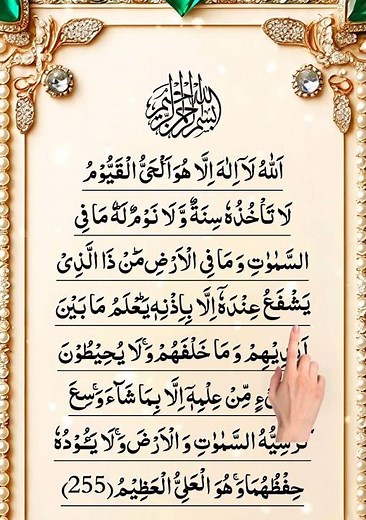 بسم الله الرحمن الرحيم
اَللهُ لَآ اِلٰهَ اِلَّا هُوَ اَلْحَیُّ الْقَیُّوْمُ
لَا تَاْخُذُهٗ سِنَةٌ وَّ لَا نَوْمٌ لَهٗ مَا فِی
السَّمٰوٰتِ وَ مَا فِی الْاَرْضِ مَنْ ذَا الَّذِیْ
یَشْفَعُ عِنْدَهٗٓ اِلَّا بِاِذْنِهٖ یَعْلَمُ مَا بَیْنَ
وَ مَا خَلْفَهُمْ وَ لَا یُحِیْطُوْنَ
مِّنْ عِلْمِهٖٓ اِلَّا بِمَا شَآءَ وَسِعَ
السَّمٰوٰتِ وَ الْاَرْضَ وَ لَا یَـُٔوْدُهٗ
حِفْظُهُمَا وَ هُوَ الْعَلِیُّ الْعَظِیْمُ (255)